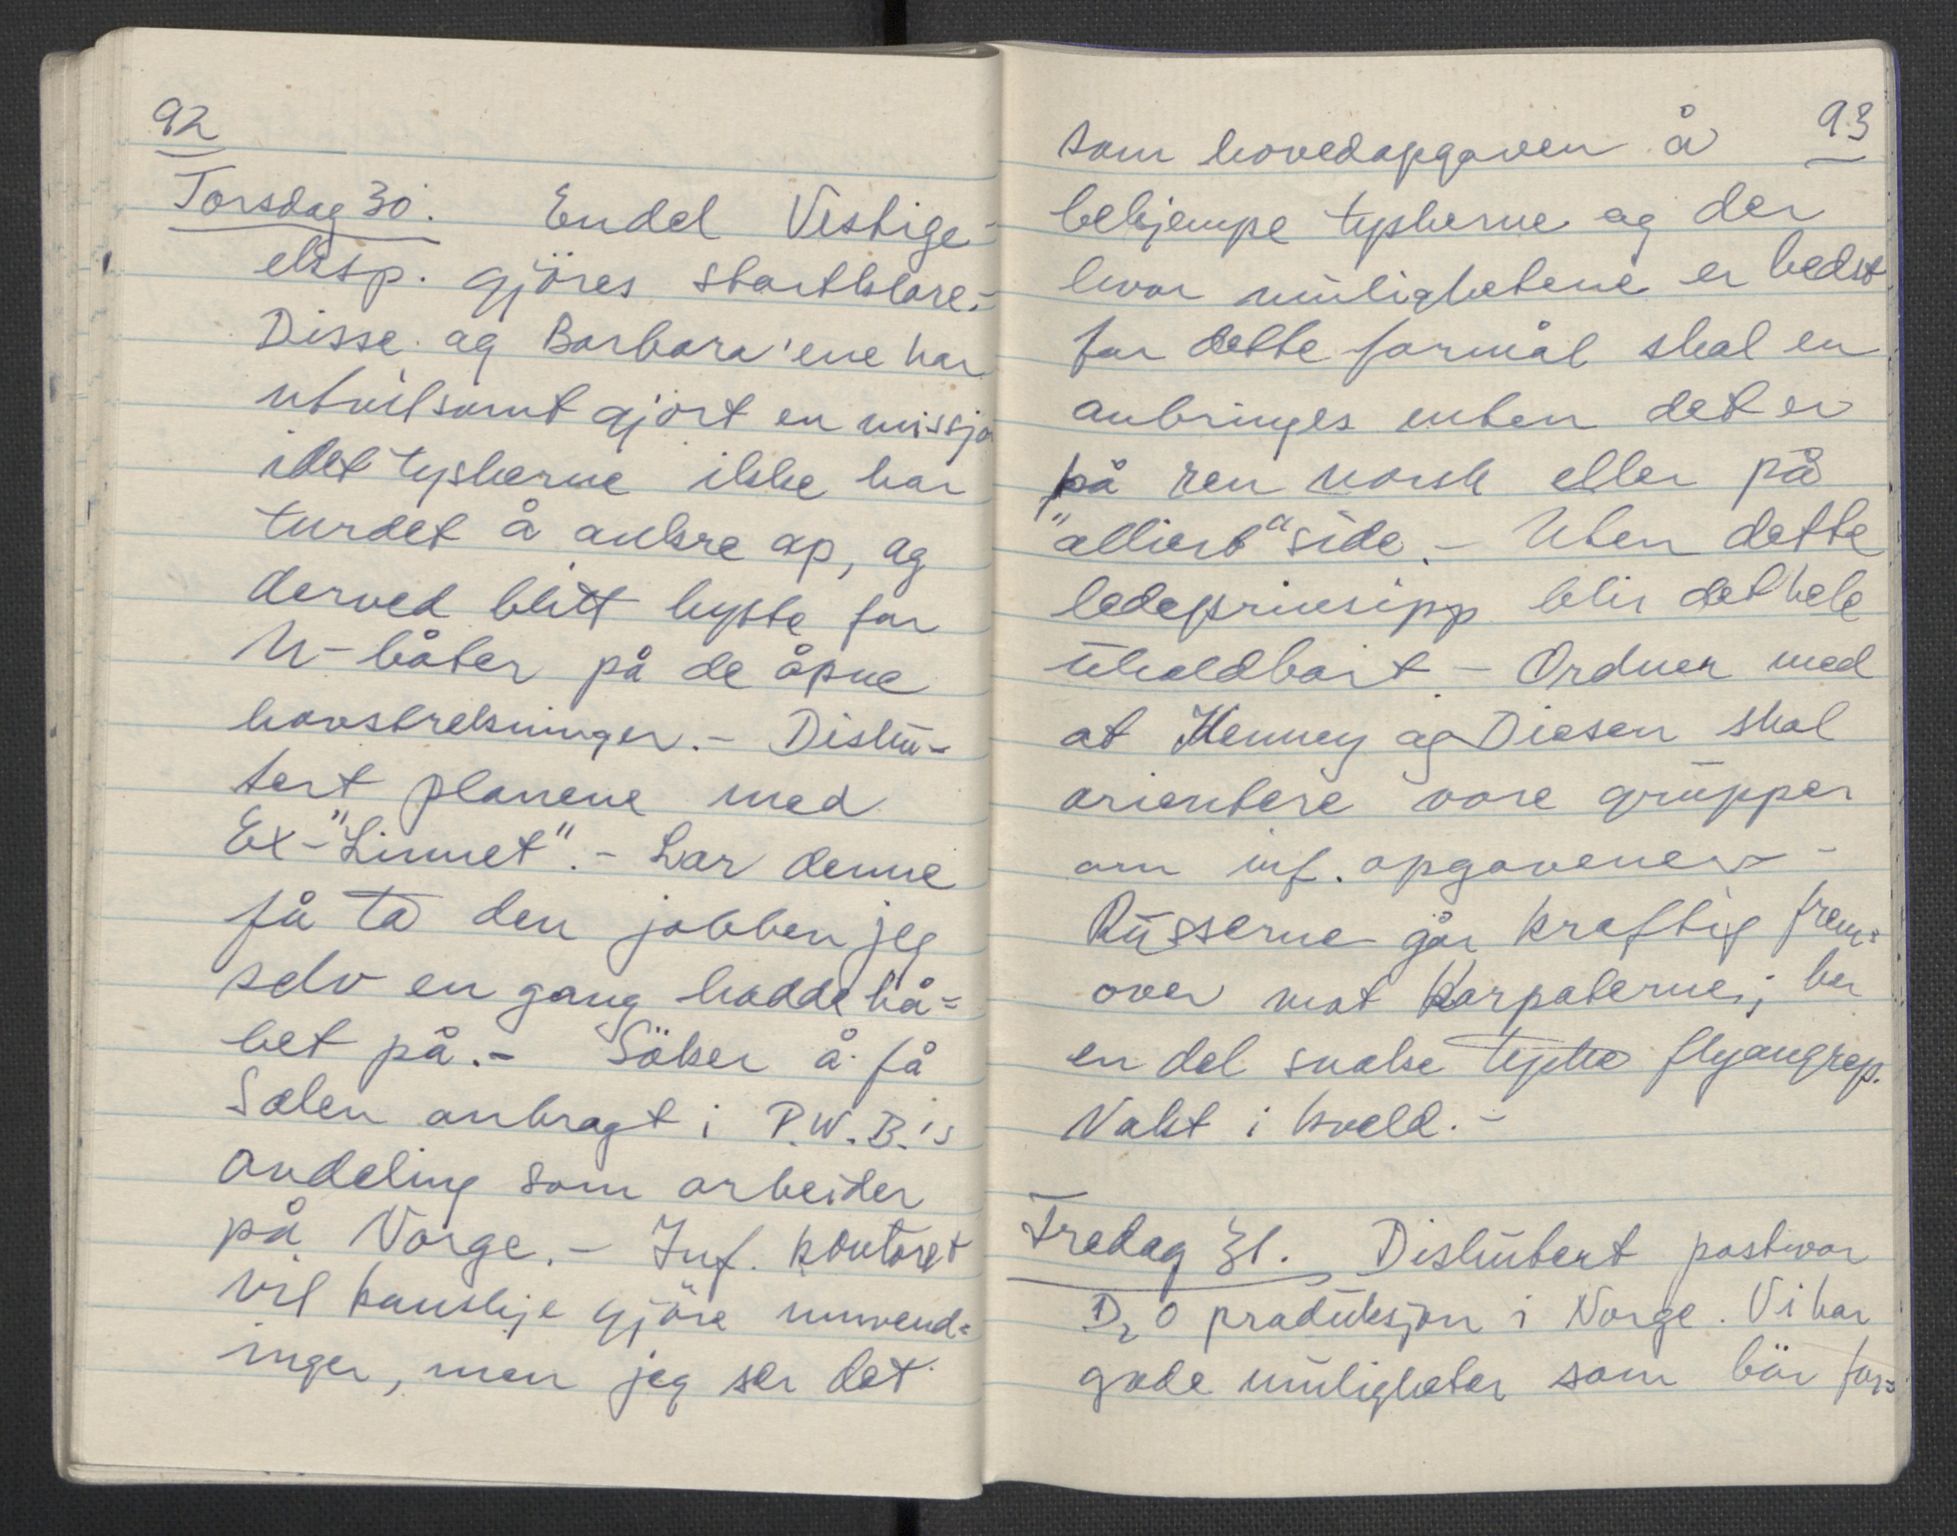 92
Torsdag 30. Endel Vestige-
eksp. gjöres startklare.-
Disse og Barbara'ene har
utvilsomt gjort en missjo
idet tyskerne ikke har
turdet å ankre op, og
derved blitt bytte for
U-båter på de åpne
havstrekninger.- Disku-
tert planene med
Ex-"Linnet".- Lar denne
få ta den jobben jeg
selv en gang hadde hå=
bet på.- Söker å få
Sælen anbragt i P.W.B.'s
avdeling som arbeider
på Norge.- Inf. kontoret
vil kanskje gjöre innvend=
inger, men jeg ser det
93
som hovedopgaven å
bekjempe tyskerne og der
hvor mulighetene er bedst
for dette formål skal en
anbringes enten det er
på ren norsk eller på
"alliert" side.- Uten dette
ledeprinsipp blir det hele
uholdbart - Ordner med
at Kenney og Diesen skal
orientere vore grupper
om inf. opgavene -
Russerne går kraftig frem=
over mot Karpaterne; her
en del svake tyske flyangrep.
Vakt i kveld.-
Fredag 31. Diskutert postwar
D2O produksjon i Norge. Vi har
gode muligheter som bör for=